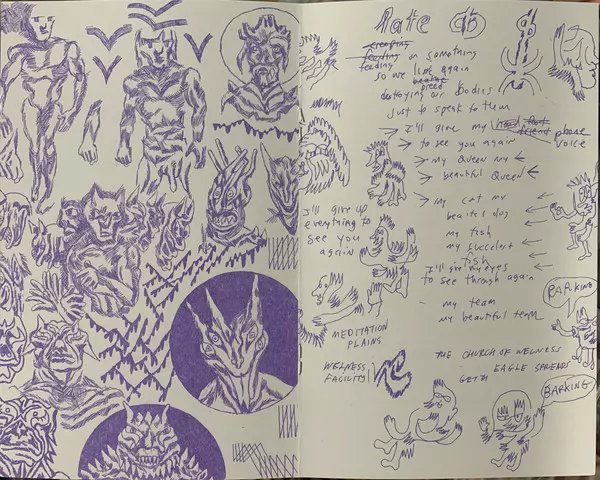 late
creeping
feeding on something
feeding
so we link again
destroying our bodies
just to speak to them
I'll give my hand foot phone
friend voice
to see you again
my Queen my
beautiful Queen
my cat my
beautiful dog
my fish
my succulent
fish
I'll give my eyes
to see through again
my team
my beautiful team
I'll give up
everything to
see you
again
MEDITATION
PLAINS
WELNESS
FACILITY
THE CHURCH OF WELNESS
EAGLE SPREADS
BARKING
BARKING